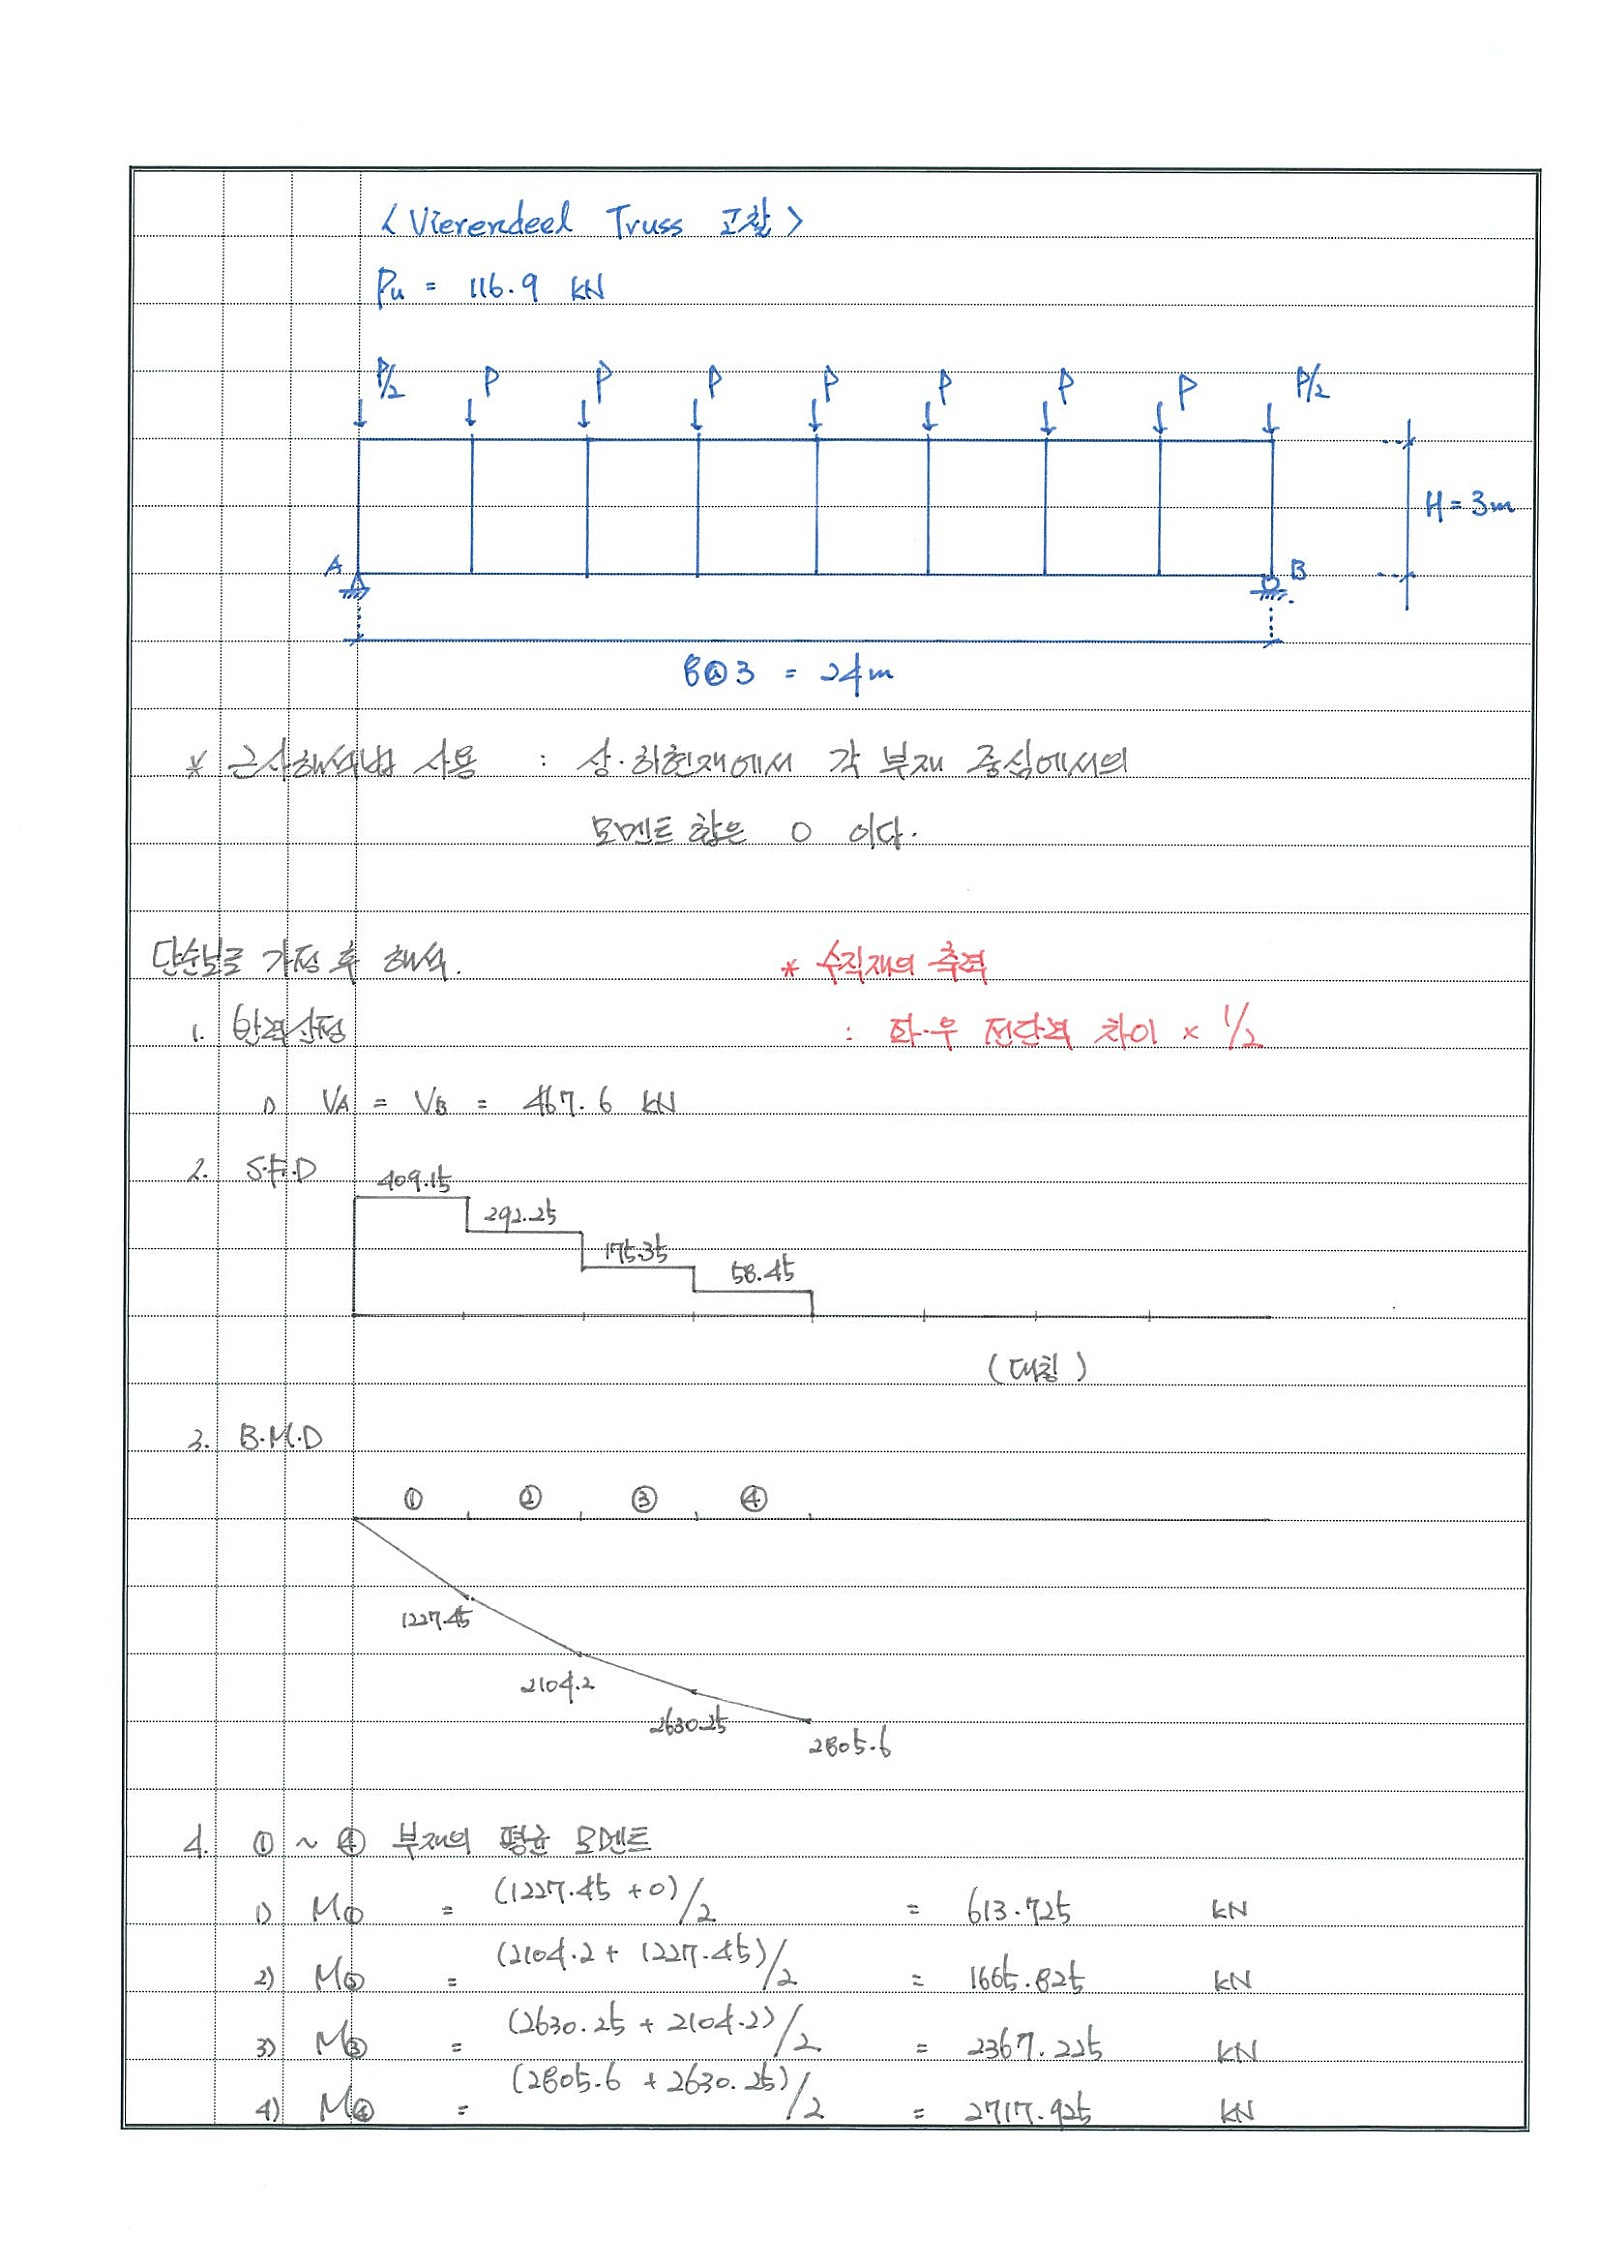 〈 Vierendeel Truss 고찰 〉
Pu = 116.9 kN
P/2 P P P P P P P P/2
H = 3m
A B
8@3 = 24m
* 근사해석법 사용 : 상·하현재에서 각 부재 중심에서의
모멘트 합은 0 이다.
단순보로 가정 후 해석.
* 수직재의 축력
1. 반력산정
: 좌·우 전단력 차이 × 1/2
1) VA = VB = 467.6 kN
2. S.F.D
409.15
292.25
175.35
58.45
(대칭)
3. B.M.D
① ② ③ ④
1227.45
2104.2
2630.25
2805.6
4. ① ~ ④ 부재의 평균 모멘트
1) M① = (1227.45 + 0)/2 = 613.725 kN
2) M② = (2104.2 + 1227.45)/2 = 1665.825 kN
3) M③ = (2630.25 + 2104.2)/2 = 2367.225 kN
4) M④ = (2805.6 + 2630.25)/2 = 2717.925 kN